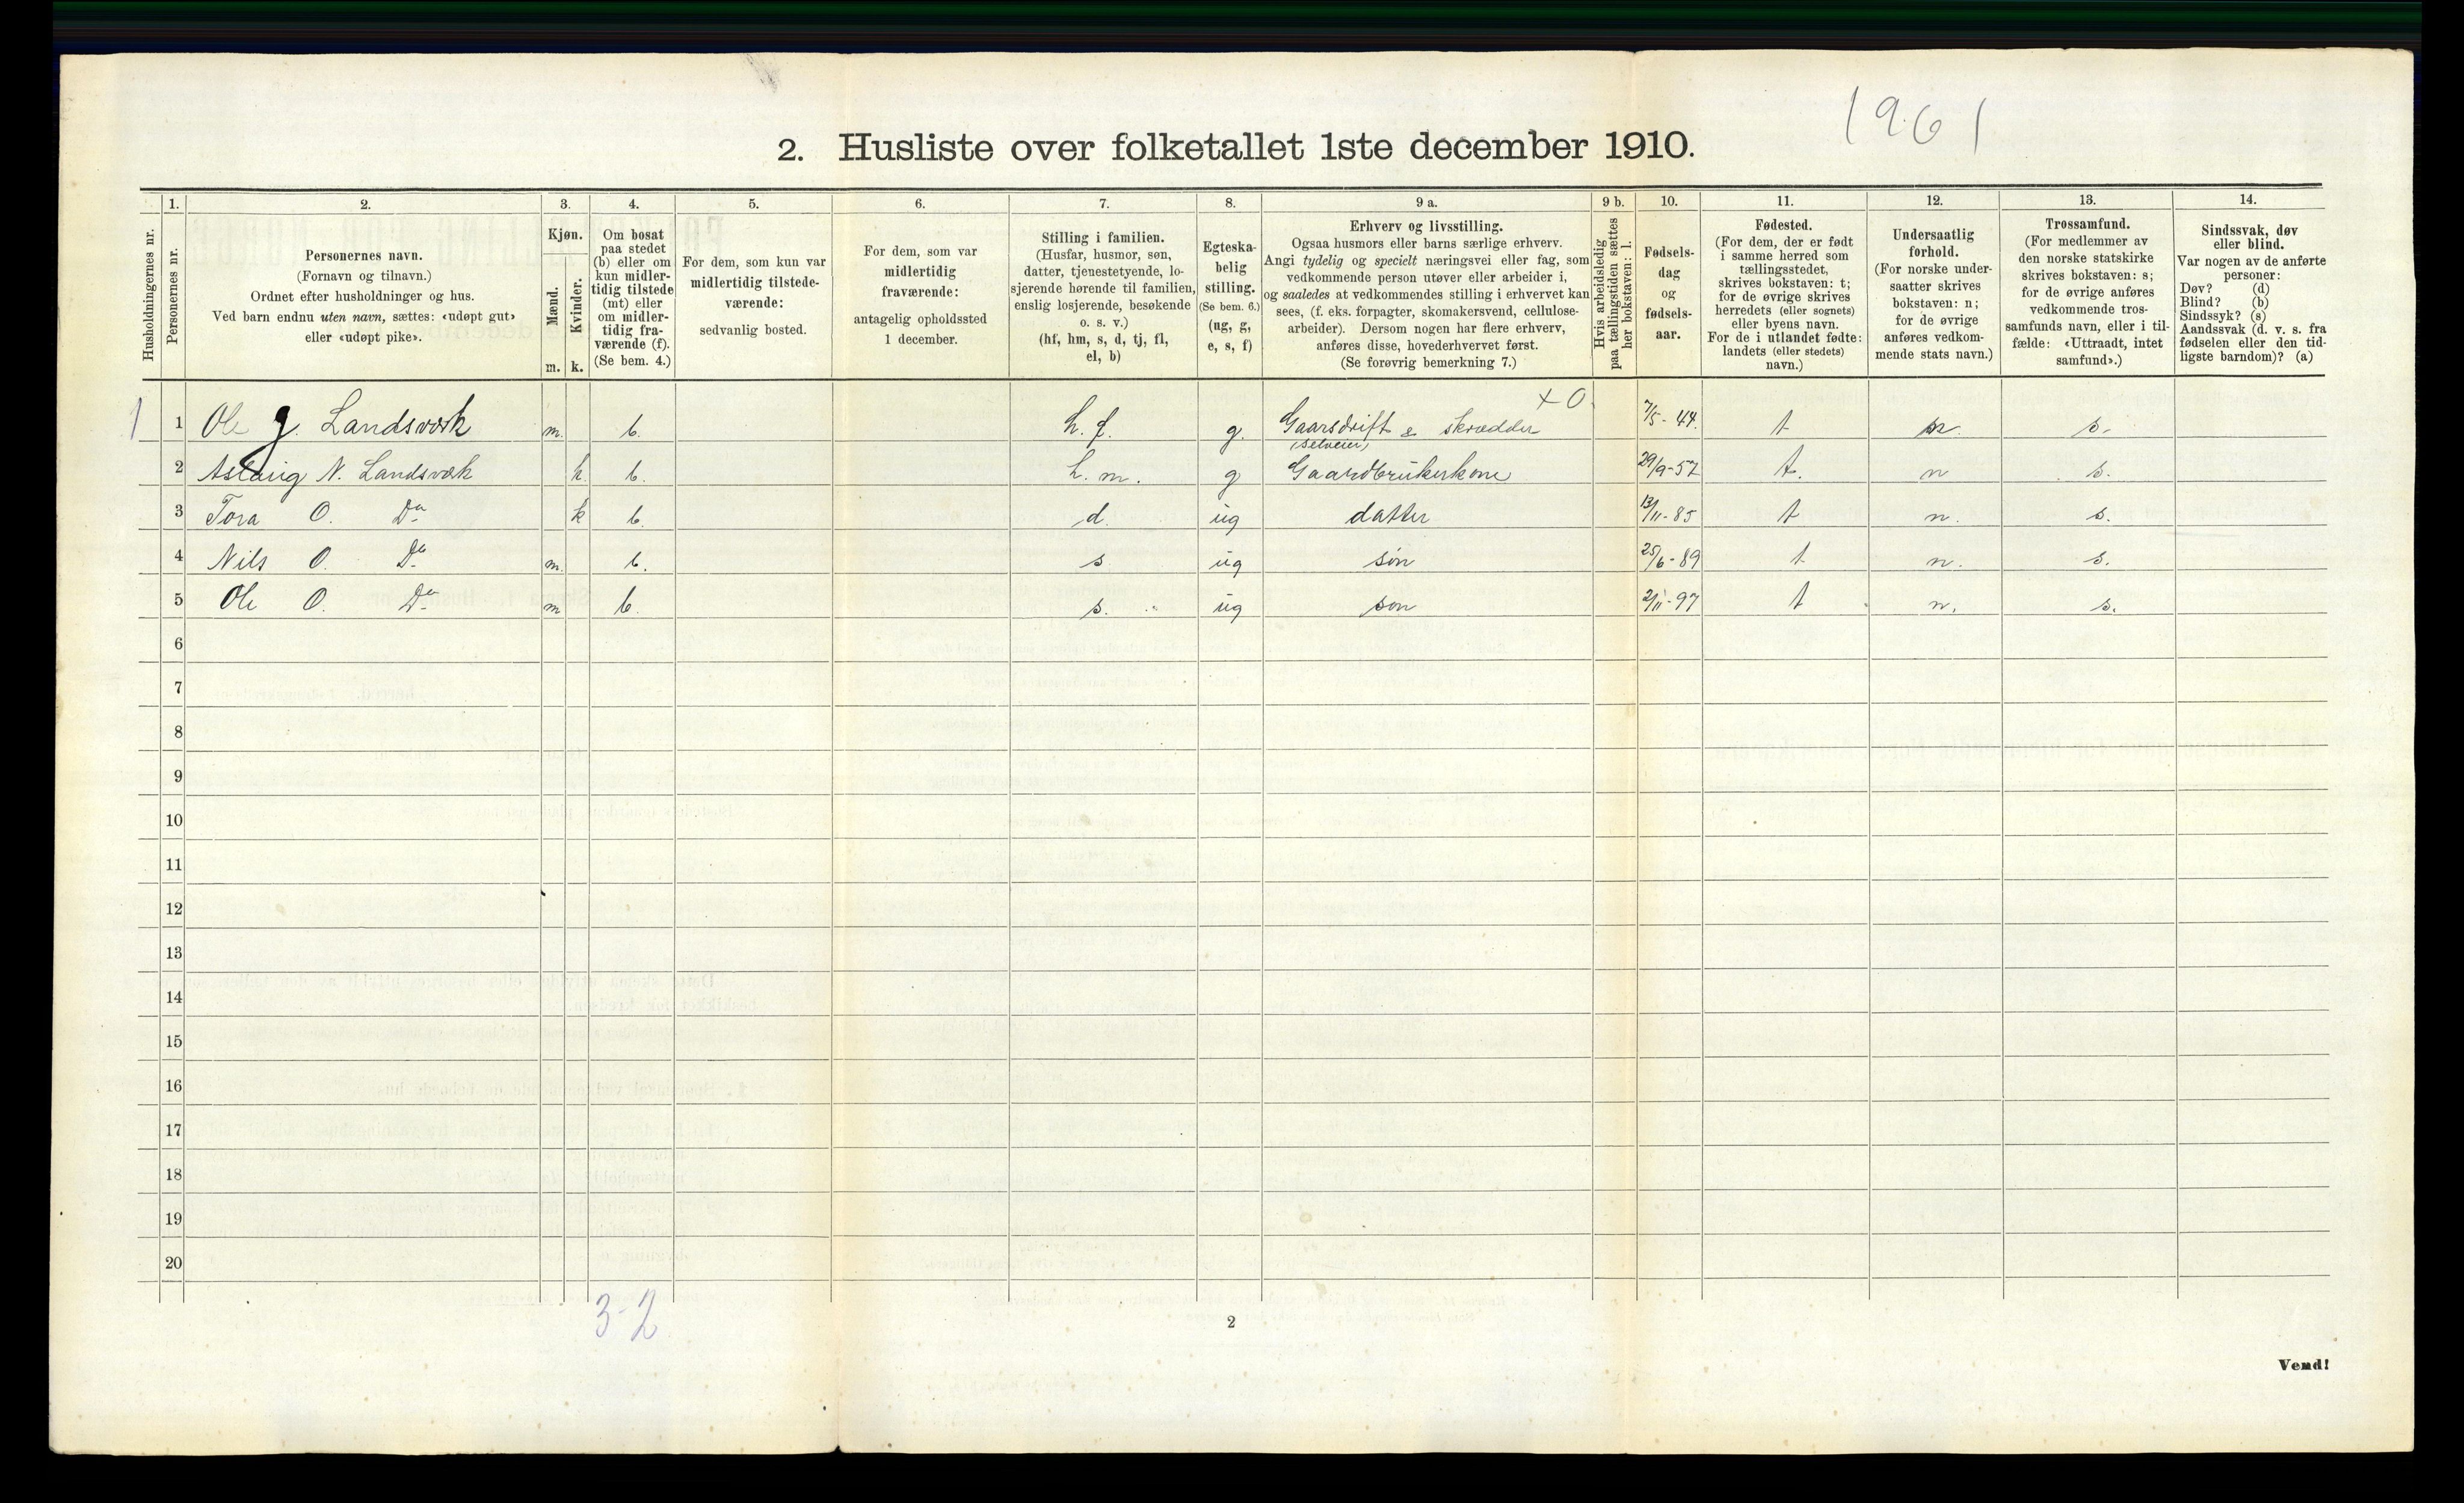 1961
2. Husliste over folketallet 1ste december 1910.
1. 2. 3. 4. 5. 6. 7. 8. 9 a. 9 b. 10. 11. 12. 13. 14.
Husholdningernes nr.
Personernes nr.
Personernes navn.
(Fornavn og tilnavn.)
Ordnet efter husholdninger og hus.
Ved barn endnu uten navn, sættes: «udøpt gut»
eller «udøpt pike».
Kjøn.
Mænd.
Kvinder.
m. k.
Om bosat
paa stedet
(b) eller om
kun midler-
tidig tilstede
(mt) eller
om midler-
tidig fra-
værende (f).
(Se bem. 4.)
For dem, som kun var
midlertidig tilstede-
værende:
sedvanlig bosted.
For dem, som var
midlertidig
fraværende:
antagelig opholdssted
1 december.
Stilling i familien.
(Husfar, husmor, søn,
datter, tjenestetyende, lo-
sjerende hørende til familien,
enslig losjerende, besøkende
o. s. v.)
(hf, hm, s, d, tj, fl,
el, b)
Egteska-
belig
stilling.
(Se bem. 6.)
(ug, g,
e, s, f)
Erhverv og livsstilling.
Ogsaa husmors eller barns særlige erhverv.
Angi tydelig og specielt næringsvei eller fag, som
vedkommende person utøver eller arbeider i,
og saaledes at vedkommendes stilling i erhvervet kan
sees, (f. eks. forpagter, skomakersvend, cellulose-
arbeider). Dersom nogen har flere erhverv,
anføres disse, hovederhvervet først.
(Se forøvrig bemerkning 7.)
Hvis arbeidsledig
paa tællingstiden sættes
her bokstaven: l.
Fødsels-
dag
og
fødsels-
aar.
Fødested.
(For dem, der er født
i samme herred som
tællingsstedet,
skrives bokstaven: t;
for de øvrige skrives
herredets (eller sognets)
eller byens navn.
For de i utlandet fødte:
landets (eller stedets)
navn.)
Undersaatlig
forhold.
(For norske under-
saatter skrives
bokstaven: n;
for de øvrige
anføres vedkom-
mende stats navn.)
Trossamfund.
(For medlemmer av
den norske statskirke
skrives bokstaven: s;
for de øvrige anføres
vedkommende tros-
samfunds navn, eller i til-
fælde: «Uttraadt, intet
samfund».)
Sindssvak, døv
eller blind.
Var nogen av de anførte
personer:
Døv? (d)
Blind? (b)
Sindssyk? (s)
Aandssvak (d. v. s. fra
fødselen eller den tid-
ligste barndom)? (a)
x 0.
1 1 Ole J. Landsværk m. b. h. f. g. Gaarsdrift & skrædder 7/5-44. t n. s.
(selveier)
2 Aslaug N. Landsværk k. b. h. m. g Gaardbrukerkone 29/9-57 t. n s.
3 Tora O. Do k b. d. ug datter 13/11-85 t n. s.
4 Nils O. Do m. b. s ug søn 25/6-89 t n. s.
5 Ole O. Do m b. s. ug søn 2/11-97 t n. s.
6
7
8
9
10
11
12
13
14
15
16
17
18
19
20
3-2
2
Vend!